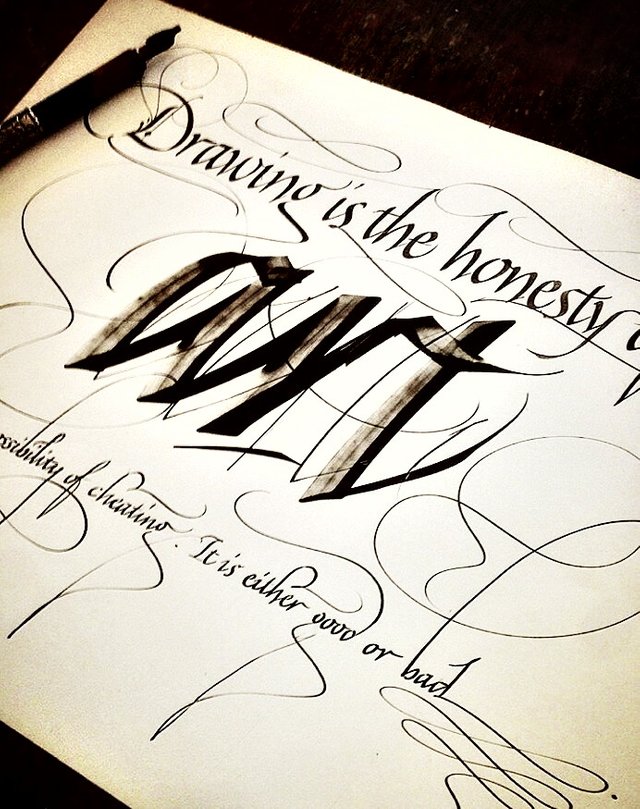 Drawing is the honesty
art
ssibility of cheating. It is either good or bad